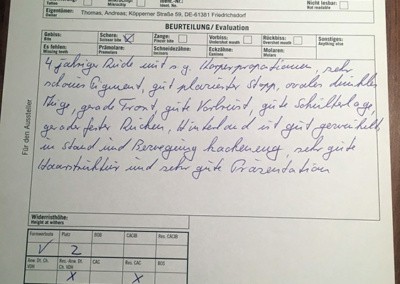 Tattoo
Mikrochip
Ident. No.
Nicht lesbar:
Not readable
Eigentümer:
Owner
Thomas, Andreas; Köpperner Straße 59, DE-61381 Friedrichsdorf
BEURTEILUNG / Evaluation
Gebiss: Schere: Zange: Vorbiss: Rückbiss: Sonstiges:
Bite Scissor bite Pincer bite Undershot mouth Overshot mouth Anything else
Es fehlen: Prämolare: Schneidezähne: Eckzähne: Molare:
Missing teeth Premolars Incisors Canines Molars
4 jährige Rüde mit s.g. Körperproportionen, sehr
schönes Pigment, gut plazierter Stopp, ovales dunkles
Auge, gerade Front, gute Vorbrust, gute Schulterlage,
gerader fester Rücken, Hinterhand ist gut gewinkelt,
in Stand und Bewegung hackeneng, sehr gute
Haarstruktur und sehr gute Präsentation
Für den Aussteller
Widerristhöhe:
Height at withers
Formwertnote Platz BOB CACIB Res. CACIB
V 2
Anw. Dt. Ch. VDH Res.-Anw. Dt. Ch. VDH CAC Res. CAC BOS
X X